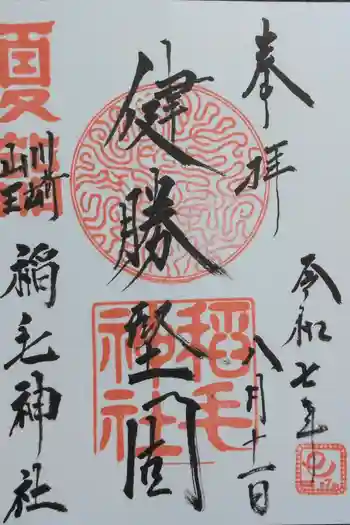 奉拝
令和七年
八月十一日
健勝堅固
稲毛
神社
夏詣
川崎
山王
稲毛神社